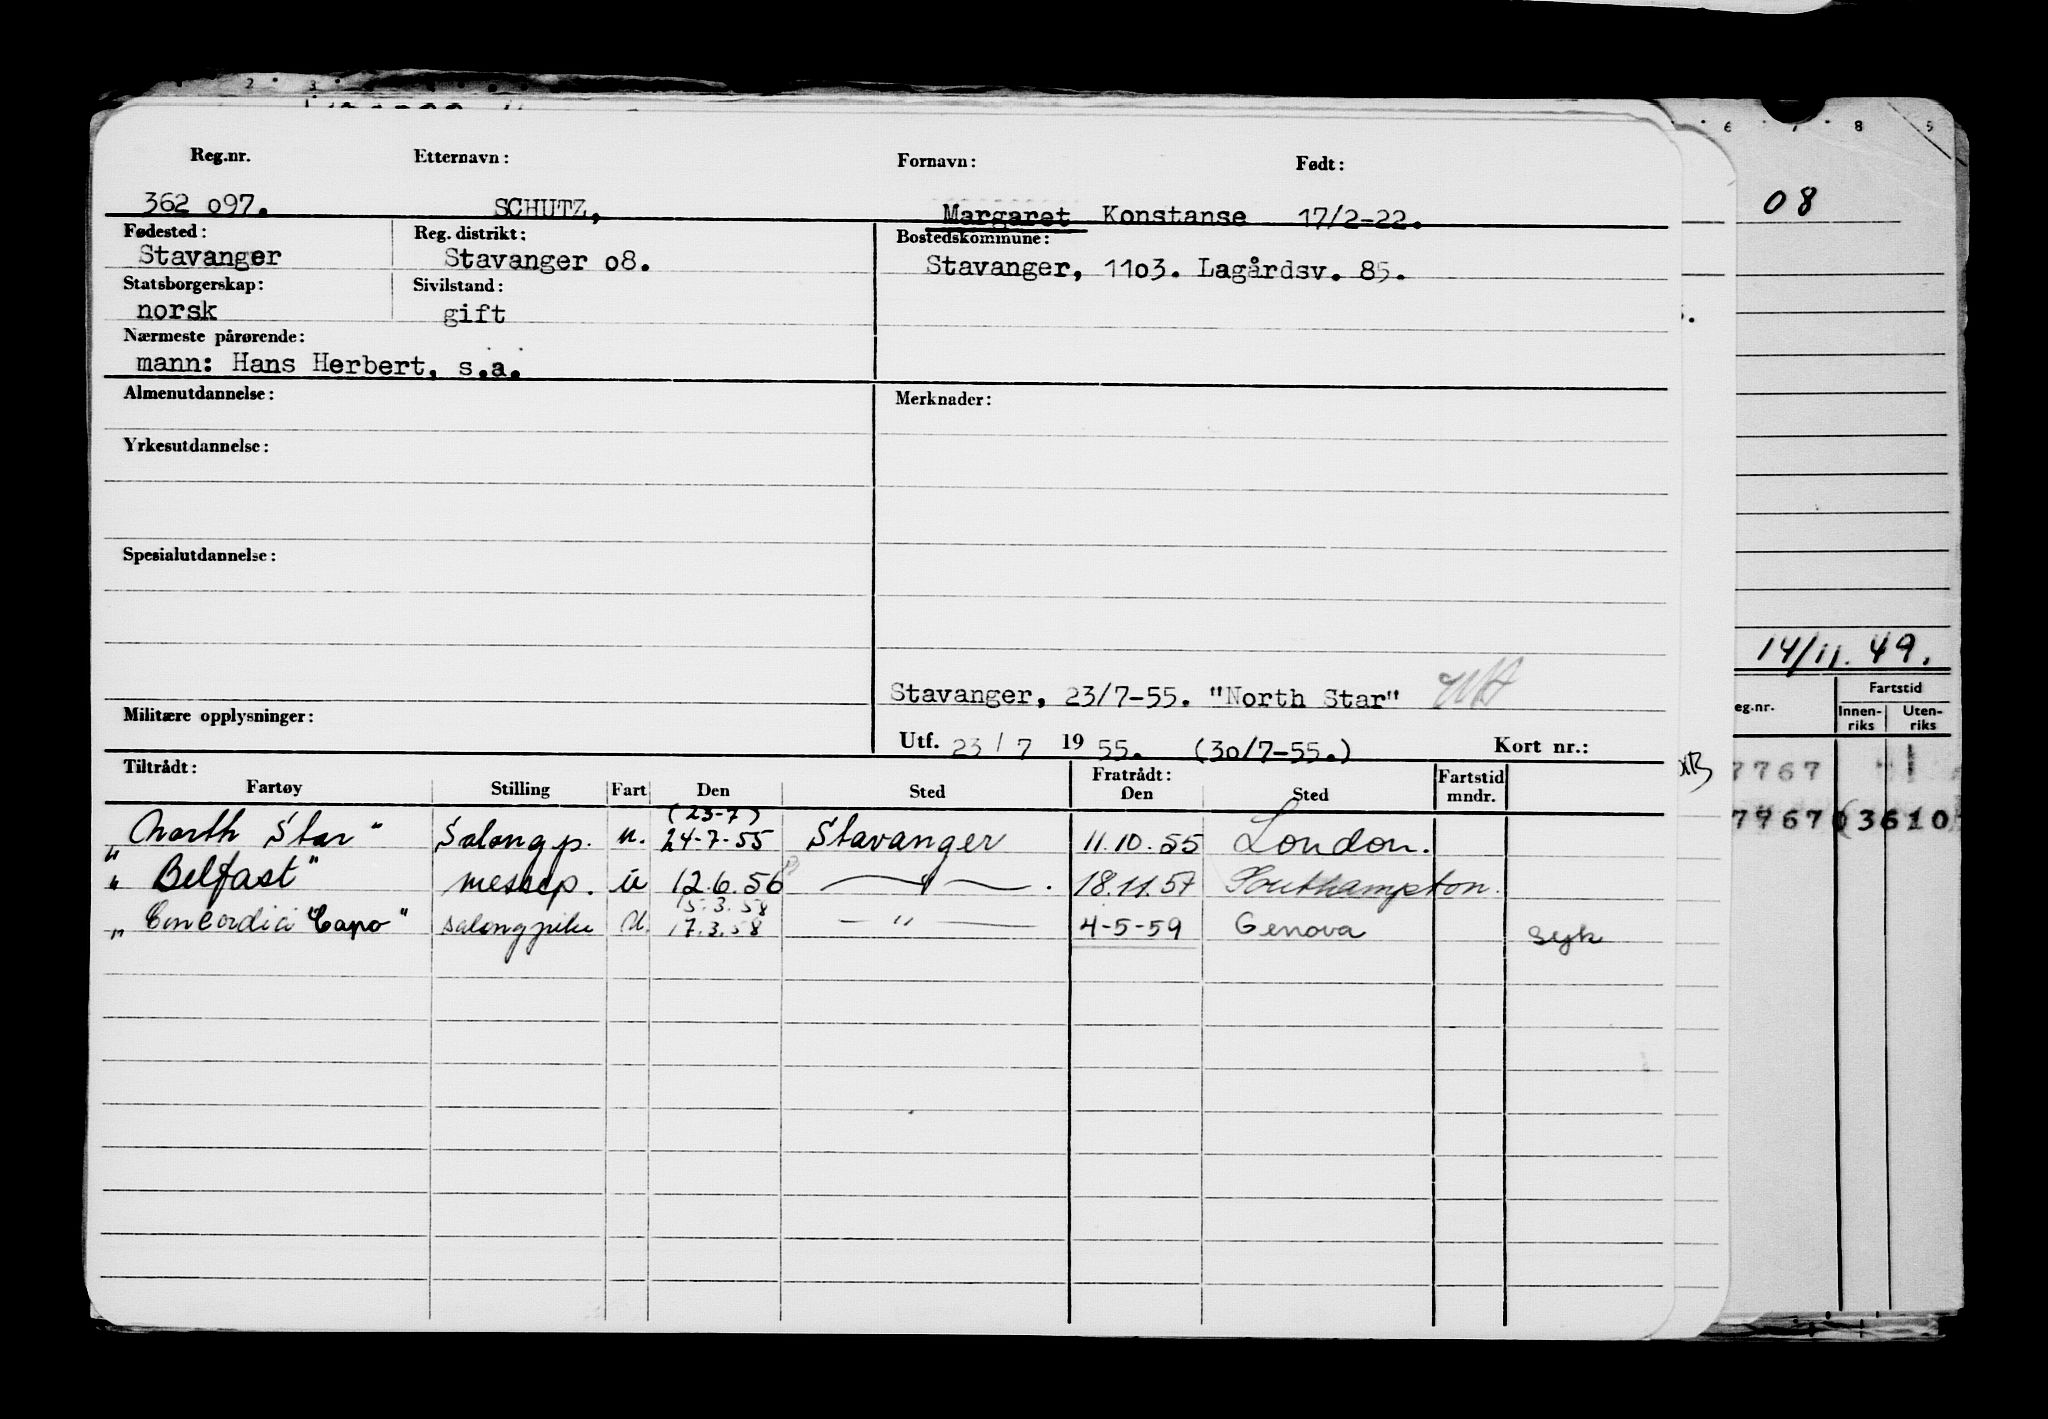 2 3
6 7 8 9
Reg.nr. Etternavn: Fornavn: Født:
362 o97. SCHUTZ, Margaret Konstanse 17/2-22.
08
Fødested: Reg. distrikt: Bostedskommune:
Stavanger Stavanger o8. Stavanger, 11o3. Lagårdsv. 85.
Statsborgerskap: Sivilstand:
norsk gift
Nærmeste pårørende:
mann: Hans Herbert, s.a.
Almenutdannelse: Merknader:
Yrkesutdannelse:
Spesialutdannelse:
14/11. 49.
Stavanger, 23/7-55. "North Star"
Militære opplysninger:
Utf. 23/7 1955. (3o/7-55.) Kort nr.:
eg.nr. Fartstid
Innen-riks Uten-riks
Tiltrådt: Fratrådt:
Fartøy Stilling Fart Den Sted Den Sted Fartstid mndr.
7767
(23-7)
"North Star" Salongp. u. 24-7-55 Stavanger 11.10.55 London.
7767 03610
"Belfast" messep. u 12.6.56 — " — . 18.11.57 Southampton.
15.3.58
"Concordia Capo" salongpike U. 17.3.58 — " — 4-5-59 Genova syk